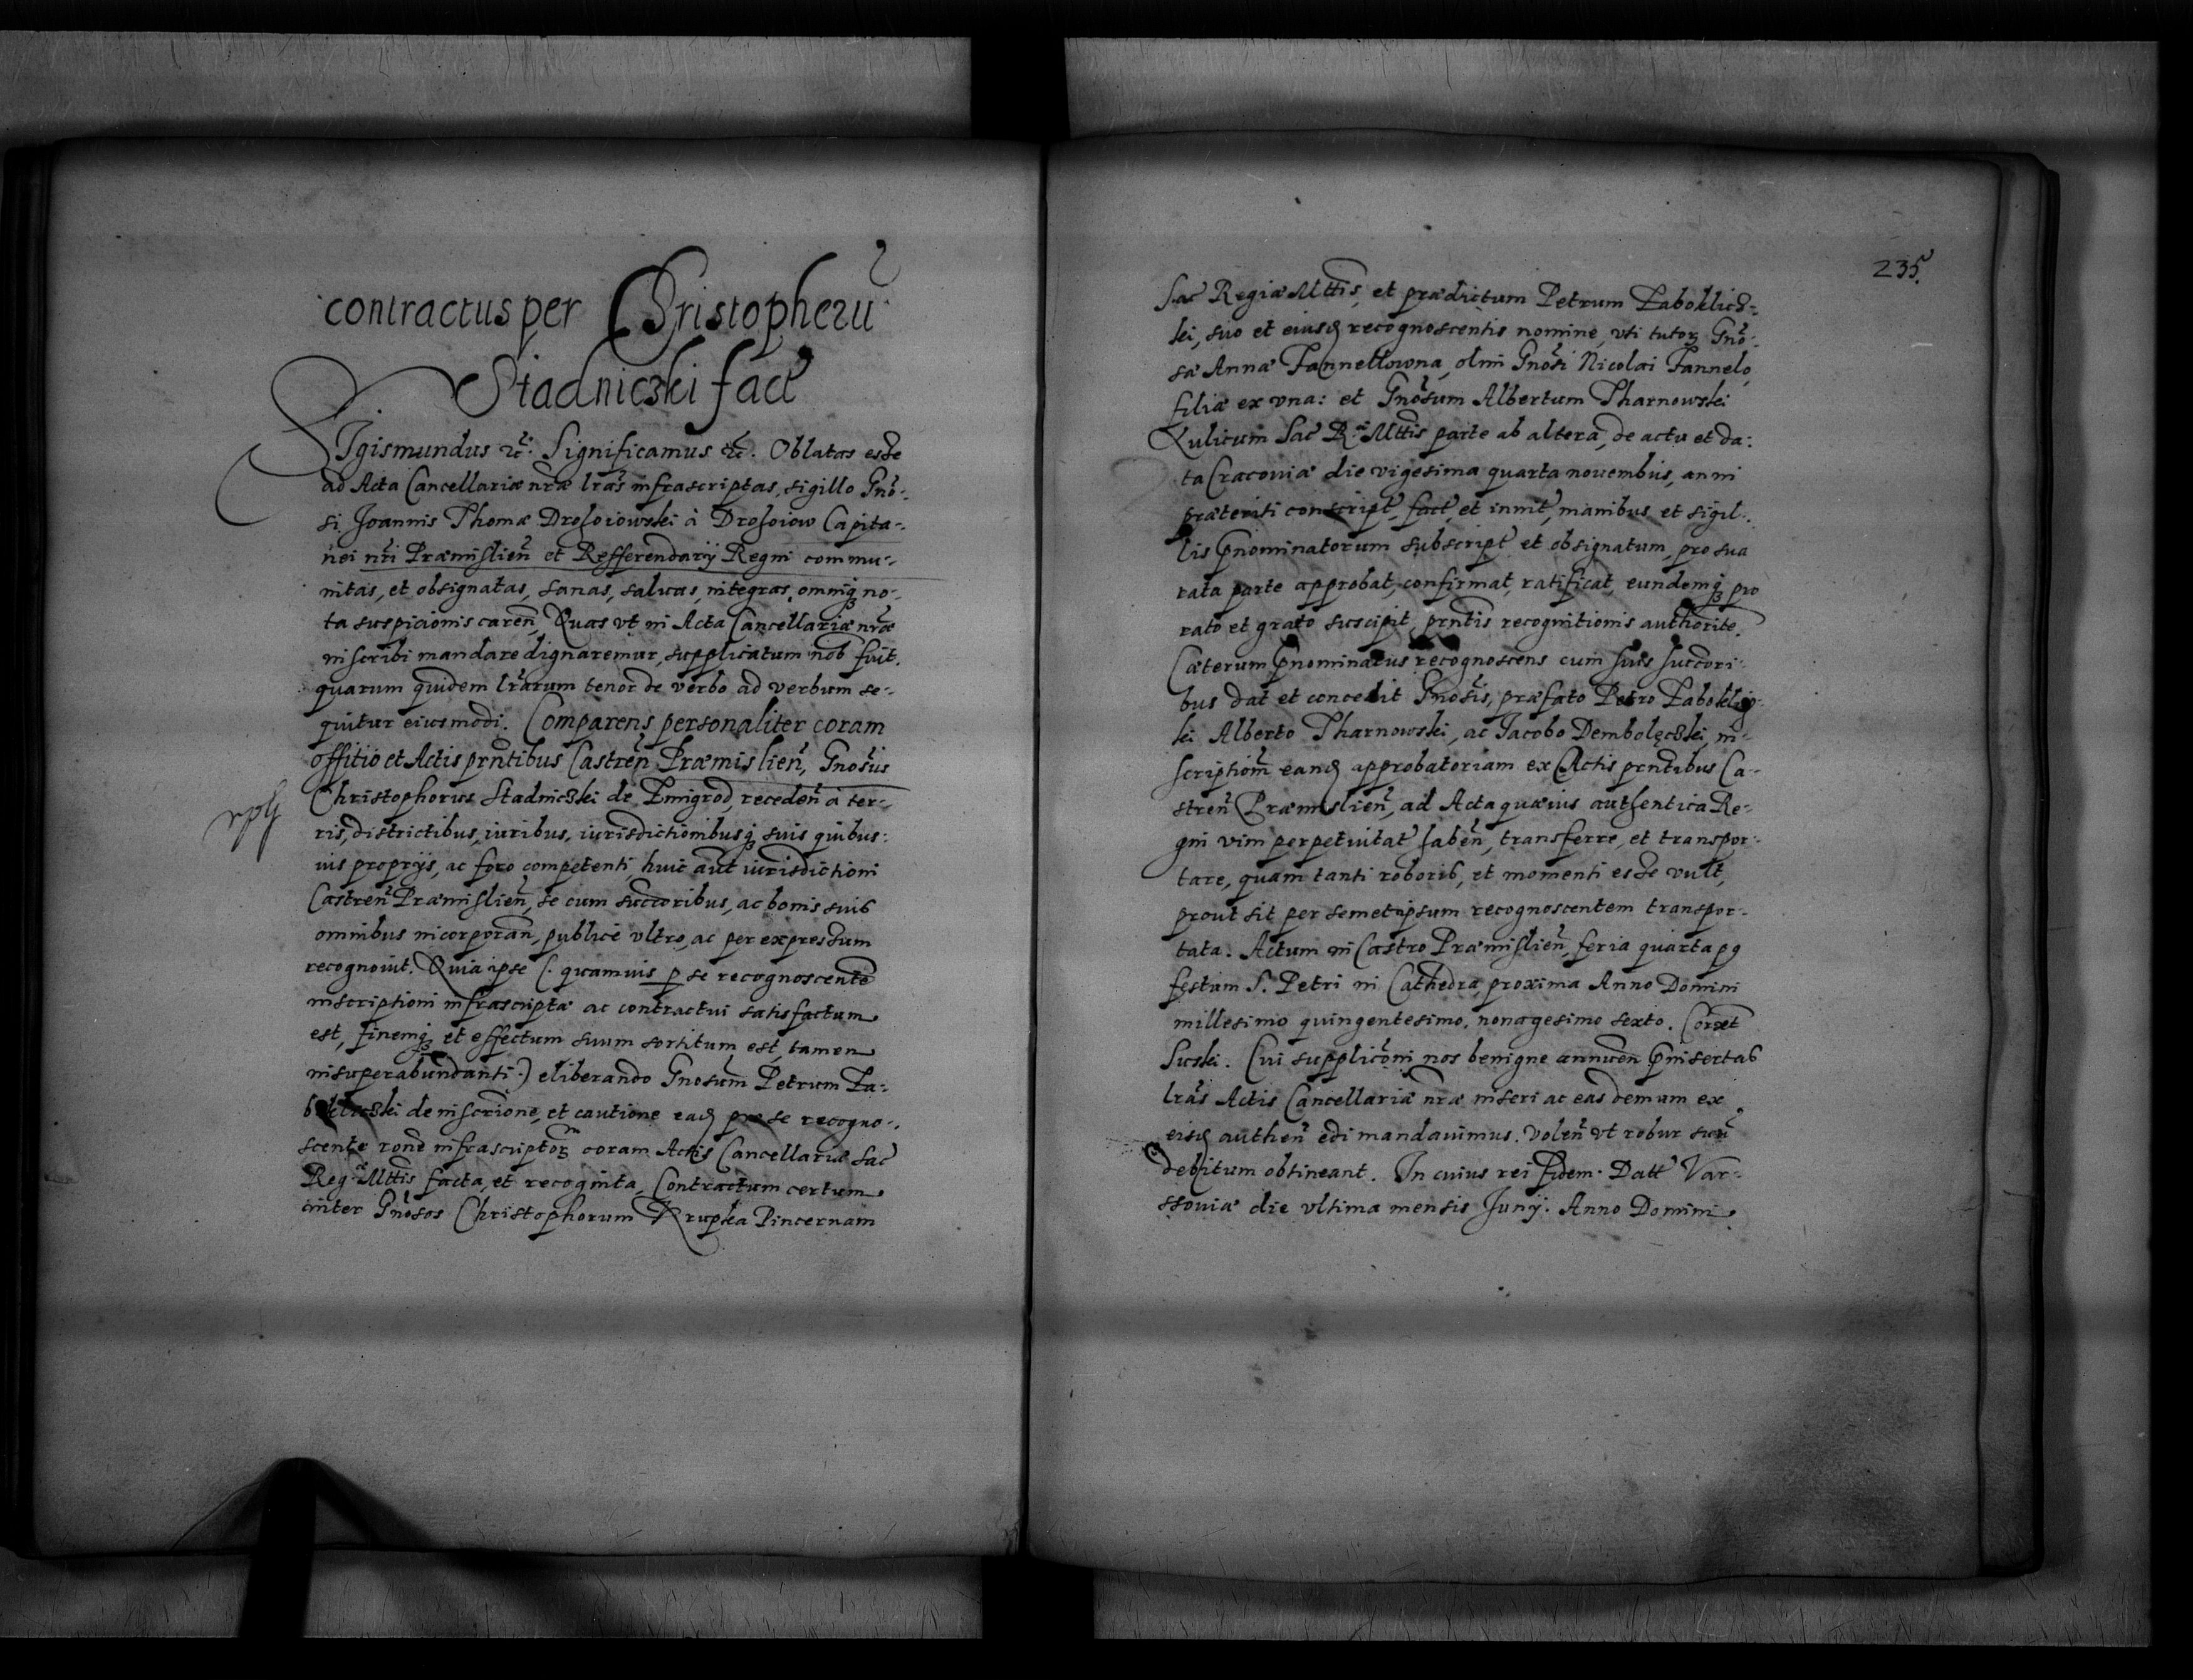 contractus per Christopherũ
Stadniczki fact
Sigismundus etc. Significamus etc. Oblatas esse
ad Acta Cancellariæ nræ lras infrascriptas, sigillo Gno-
si Joannis Thomæ Drohoiowski à Drohoiow Capita-
nei nri Præmislien et Refferendarij Regni commu-
nitas, et obsignatas, sanas, saluas, integras, omniq no-
ta suspicionis caren, Quas vt in Acta Cancellariæ nræ
inscribi mandare dignaremur, supplicatum nob fuit.
quarum quidem lrarum tenor de verbo ad verbum se-
quitur eiusmodi. Comparens personaliter coram
offitio et Actis prntibus Castren Præmislien, Gnosus
Christophorus Stadniczki de Zmigrod, receden à ter-
ris, districtibus, iuribus, iurisdictionibusq suis quibus-
uis proprijs, ac foro competenti, huic aut iurisdictioni
Castren Præmislien, se cum succoribus, ac bonis suis
omnibus incorporan, publicè vltro, ac per expressum
recognouit. Quia ipse (. quamuis p se recognoscente
inscriptioni infrascriptæ ac contractui satisfactum
est, finemq et effectum suum sortitum est, tamen
insuperabundanti .) eliberando Gnosum Petrum Za-
bokliczki de inscrione, et cautione ead præ se recogno-
scente rone infrascriptor coram Actis Cancellariæ Sac
Reg Mttis facta, et recognita, Contractum certum
inter Gnosos Christophorum Krupka Pincernam
235.
Sac Regiæ Mttis, et prædictum Petrum Zaboklicz-
ki, suo et eiusd recognoscentis nomine, vti tutor Gno-
sæ Annæ Fannellowna, olim Gnosi Nicolai Fannelo,
filiæ ex vna: et Gnosum Albertum Tharnowski
Aulicum Sac R Mttis parte ab altera, de actu et da-
ta Cracouiæ die vigesima quarta nouembris, anni
præteriti conscript, fact, et innit, manibus et sigil-
lis pnominatorum subscript et obsignatum, pro sua
rata parte approbat, confirmat, ratificat, eundemq pro
rato et grato suscipit, prntis recognitionis authorite.
Cæterum pnominatus recognoscens cum suis succori-
bus dat et concedit Gnosis, præfato Petro Zaboklicz-
ki Alberto Tharnowski, ac Jacobo Dembolęczki, in-
scriptiom eand approbatoriam ex Actis prntibus Ca-
stren Præmislien, ad Acta quæuis authentica Re-
gni vim perpetuitat haben, transferre, et transpor-
tare, quam tanti roboris, et momenti esse vult,
prout sit per semetipsum recognoscentem transpor-
tata. Actum in Castro Præmislien, feria quarta pq
festum S. Petri in Cathedra proxima Anno Domini
millesimo quingentesimo, nonagesimo sexto.
Cui suppliconi nos benigne annuen pinsertas
lras Actis Cancellariæ nræ inseri ac eas demum ex
eisd authen edi mandauimus. Volen vt robur suũ
debitum obtineant. In cuius rei fidem. Datt Var-
ssouiæ die vltima mensis Junij. Anno Domini